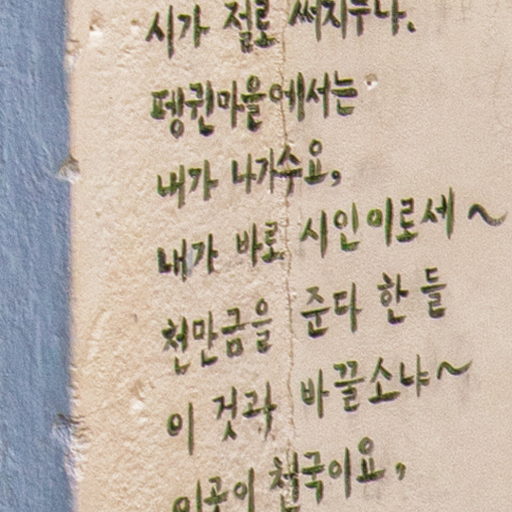 시가 절로 써지누나.
펭귄마을에서는
내가 나가수요,
내가 바로 시인이로세~
천만금을 준다 한들
이 것과 바꿀소냐~
이곳이 천국이요,